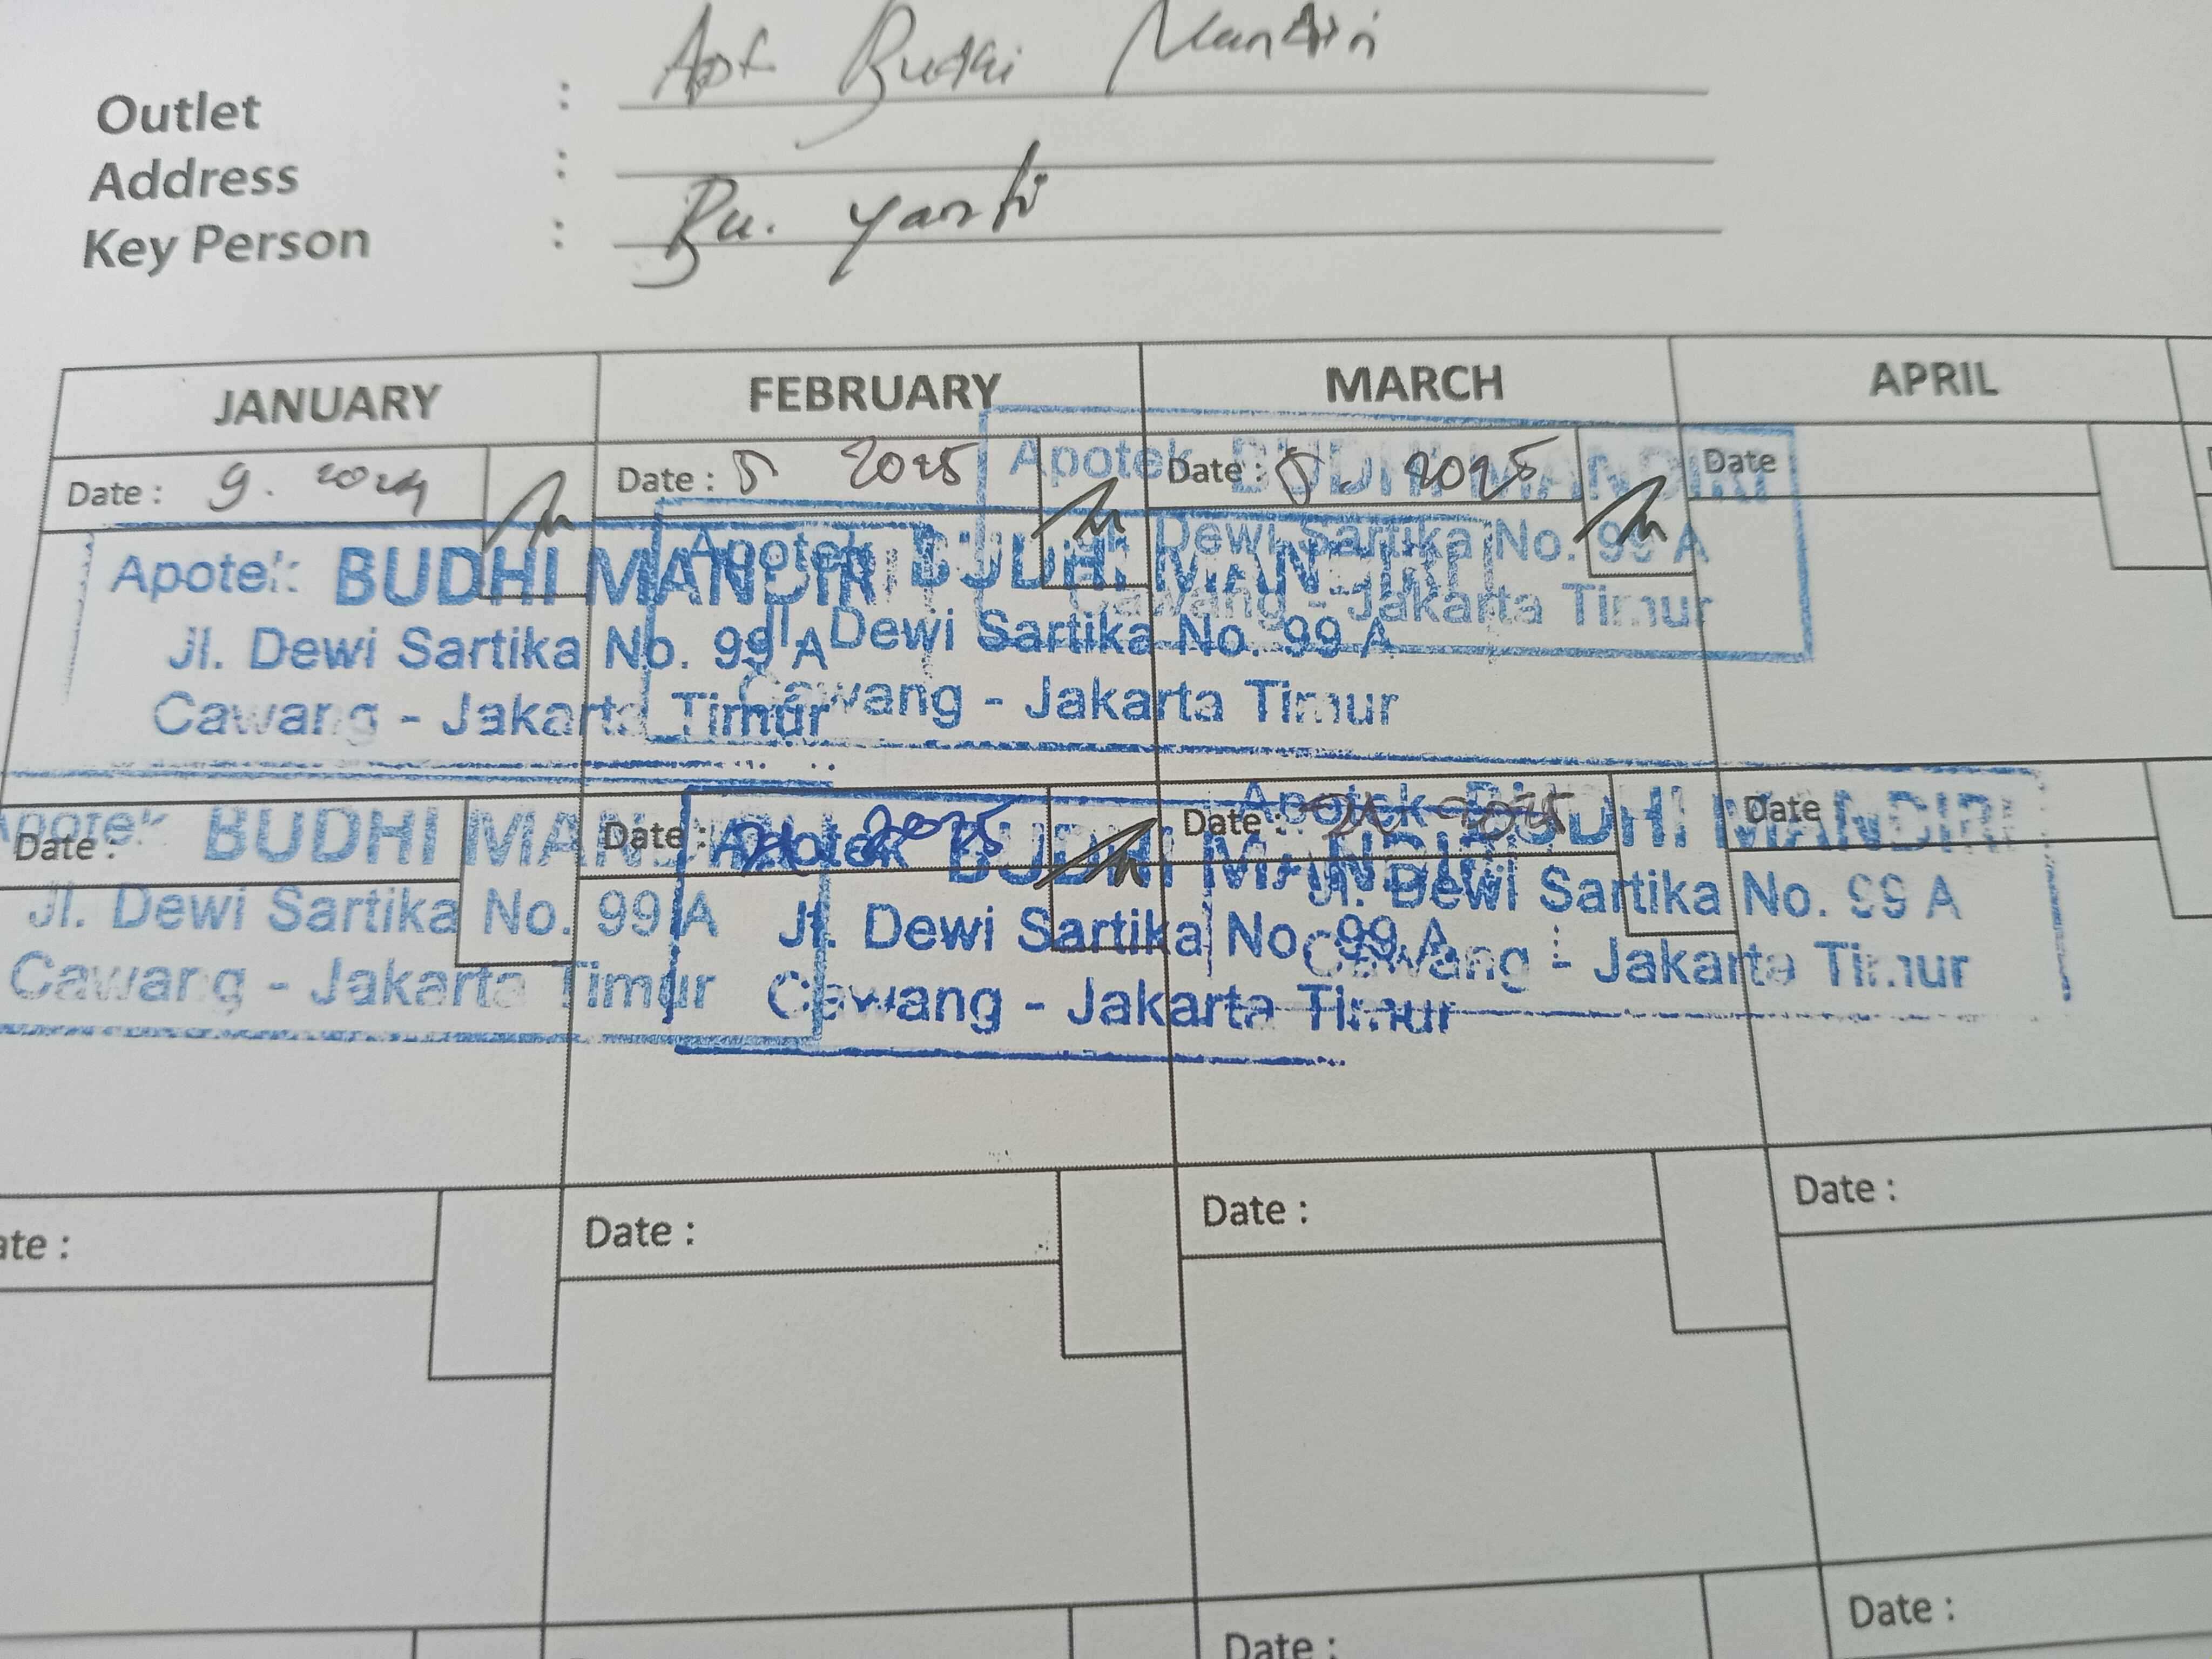 Outlet : Apt Budhi Mandiri
Address :
Key Person : Bu. Yanti
JANUARY FEBRUARY MARCH APRIL
Date : 9. 2024 Date : 5 2025 Date : 5. 2025 Date
Apotek BUDHI MANDIRI
Jl. Dewi Sartika No. 99 A
Cawang - Jakarta Timur
Apotek BUDHI MANDIRI
Jl. Dewi Sartika No. 99 A
Cawang - Jakarta Timur
Apotek BUDHI MANDIRI
Dewi Sartika No. 99 A
Cawang - Jakarta Timur
Date : Date : 2025 Date : 2025 Date
Apotek BUDHI MANDIRI
Jl. Dewi Sartika No. 99 A
Cawang - Jakarta Timur
Apotek BUDHI MANDIRI
Jl. Dewi Sartika No. 99 A
Cawang - Jakarta Timur
Apotek BUDHI MANDIRI
Jl. Dewi Sartika No. 99 A
Cawang - Jakarta Timur
ate : Date : Date : Date :
Date : Date :